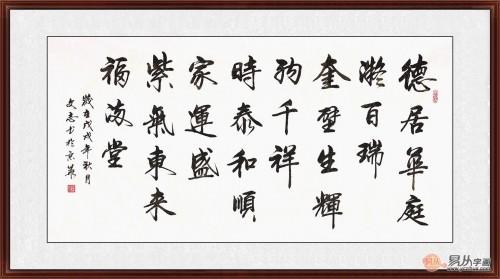 德居華庭
凝百瑞
奎壁生輝
納千祥
時泰和順
家運盛
紫氣東來
福滿堂
歲在戊戌年秋月
文志书於京華
易从字画